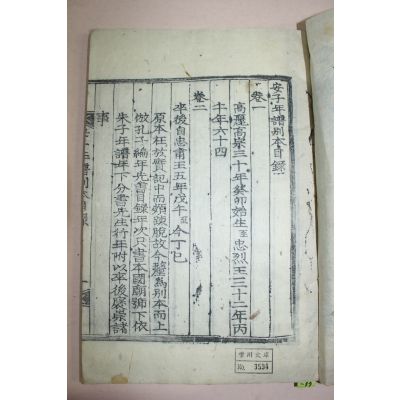 安子年譜別本目錄
卷一
高麗高宗三十年癸卯始生至忠烈王三十二年丙
午年六十四
卷二
卒後自忠肅王五年戊午至今丁巳
原本在放實記中而頗號脫故今釐爲別本而上
倣孔子編年先書目錄年次只書本國廟號下依
朱子年譜年下分書先生行年附以卒後褒崇諸
事
安子年譜別本目錄
一
No. 3534